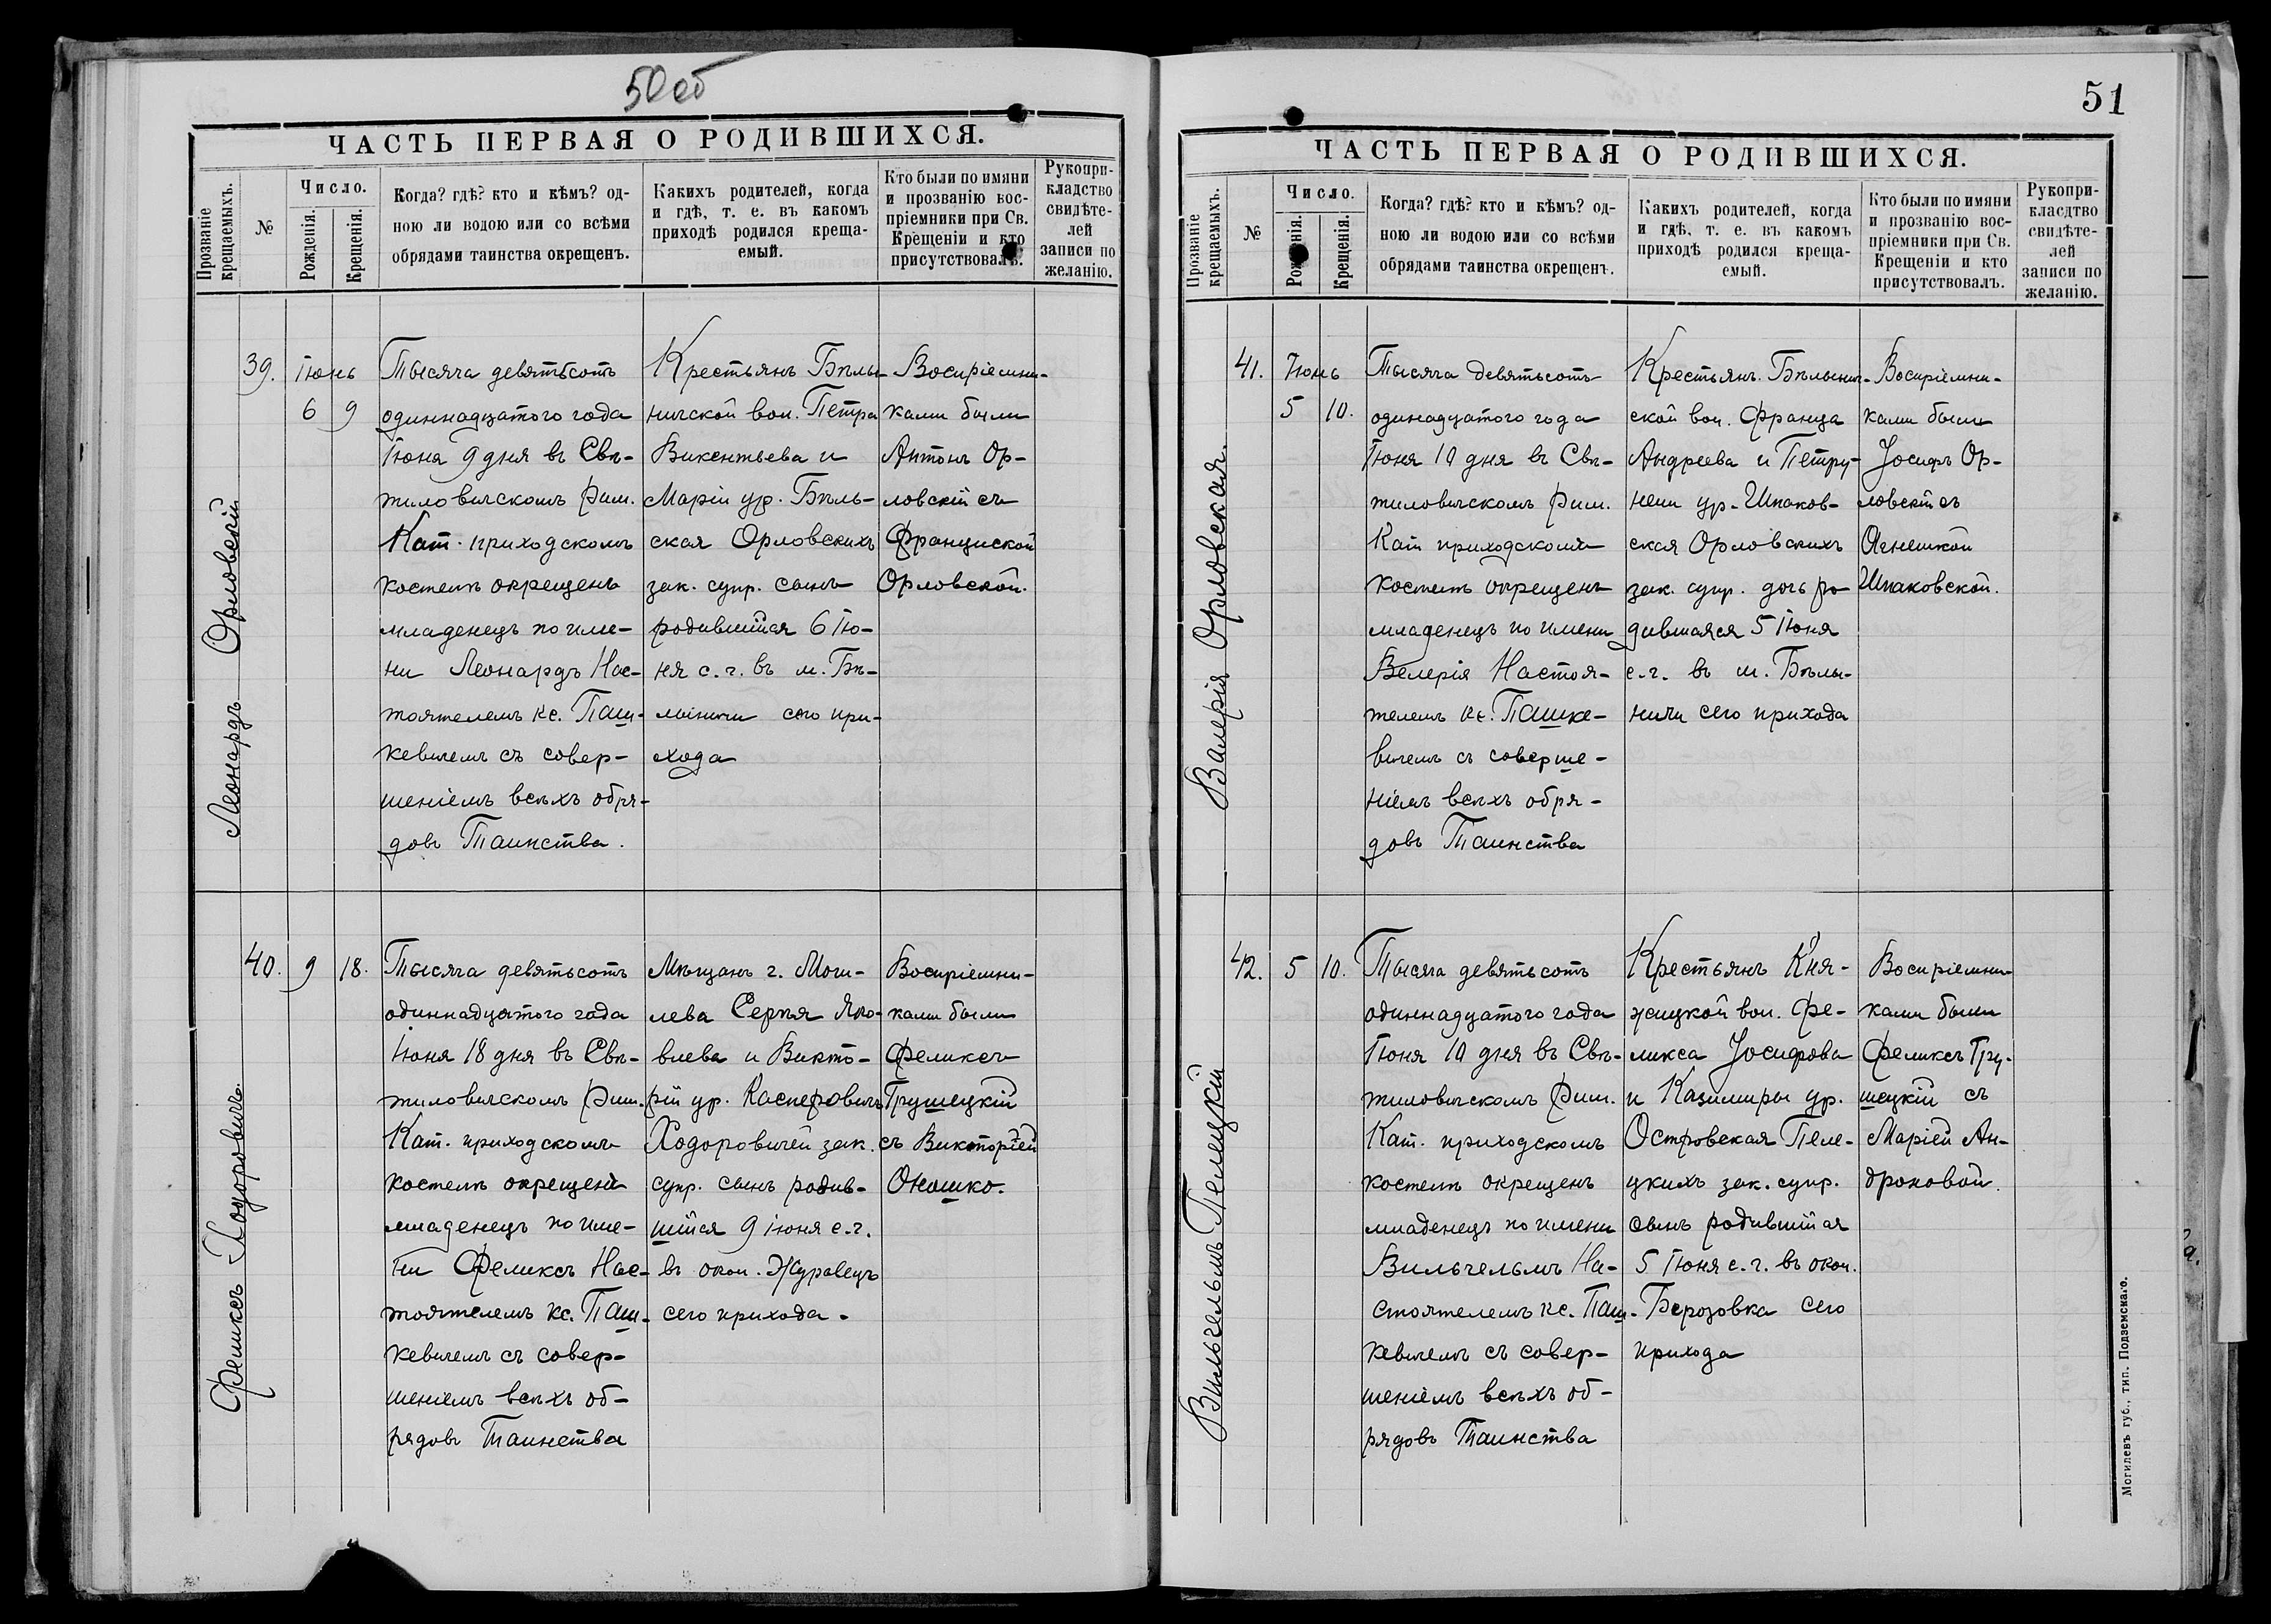 50 об
ЧАСТЬ ПЕРВАЯ О РОДИВШИХСЯ.
Прозваніе крещаемыхъ.
№
Число.
Рожденія.
Крещенія.
Когда? гдѣ? кто и кѣмъ? од-
ною ли водою или со всѣми
обрядами таинства окрещенъ.
Какихъ родителей, когда
и гдѣ, т. е. въ какомъ
приходѣ родился креща-
емый.
Кто были по имяни
и прозванію вос-
пріемники при Св.
Крещеніи и кто
присутствовалъ.
Рукопри-
кладство
свидѣте-
лей
записи по
желанію.
Леонардъ Орловскій
39.
Іюнь
6 9
Тысяча девятьсотъ
одиннадцатого года
Іюня 9 дня въ Свѣ-
тиловичскомъ Рим.
Кат. приходскомъ
костелѣ окрещенъ
младенецъ по име-
ни Леонардъ Нас-
тоятелемъ кс. Паш-
кевичемъ съ совер-
шеніемъ всѣхъ обря-
довъ Таинства.
Крестьянъ Бѣлы-
ничской вол. Петра
Викентьева и
Маріи ур. Бѣль-
ская Орловскихъ
зак. супр. сынъ
родившійся 6 Ію-
ня с. г. въ м. Бѣ-
лыничи сего при-
хода
Воспріемни-
ками были
Антонъ Ор-
ловскій съ
Франциской
Орловской.
Феликсъ Ходоровичъ.
40. 9 18.
Тысяча девятьсотъ
одиннадцатого года
Іюня 18 дня въ Свѣ-
тиловичскомъ Рим.
Кат. приходскомъ
костелѣ окрещенъ
младенецъ по име-
ни Феликсъ Нас-
тоятелемъ кс. Паш-
кевичемъ съ совер-
шеніемъ всѣхъ об-
рядовъ Таинства
Мѣщанъ г. Моги-
лева Сергѣя Яко-
влева и Викто-
рій ур. Касперовичъ
Ходоровичей зак.
супр. сынъ родив-
шійся 9 іюня с. г.
въ окол. Журавецъ
сего прихода.
Воспріемни-
ками были
Феликсъ
Грушецкій
съ Викторіей
Оношко.
51
ЧАСТЬ ПЕРВАЯ О РОДИВШИХСЯ.
Прозваніе крещаемыхъ.
№
Число.
Рожденія.
Крещенія.
Когда? гдѣ? кто и кѣмъ? од-
ною ли водою или со всѣми
обрядами таинства окрещенъ.
Какихъ родителей, когда
и гдѣ, т. е. въ какомъ
приходѣ родился креща-
емый.
Кто были по имяни
и прозванію вос-
пріемники при Св.
Крещеніи и кто
присутствовалъ.
Рукопри-
класдтво
свидѣте-
лей
записи по
желанію.
Валерія Орловская.
41.
Іюнь
5 10.
Тысяча девятьсотъ
одинадцатого года
Іюня 10 дня въ Свѣ-
тиловичскомъ Рим.
Кат приходскомъ
костелѣ окрещенъ
младенецъ по имени
Велерія Настоя-
телемъ кс. Пашке-
вичемъ съ соверше-
ніемъ всѣхъ обря-
довъ Таинства
Крестьянъ. Бѣлынич-
ской вол. Франца
Андреева и Петру-
нели ур. Шпаков-
ская Орловскихъ
зак. супр. дочь ро-
дившаяся 5 Іюня
с. г. въ м. Бѣлы-
ничи сего прихода
Воспріемни-
ками были
Іосифъ Ор-
ловскій съ
Агнешкой
Шпаковской.
Вильгельмъ Пелецкій
42. 5 10.
Тысяча девятьсотъ
одиннадцатого года
Іюня 10 дня въ Свѣ-
тиловичскомъ Рим.
Кат. приходскомъ
костелѣ окрещенъ
младенецъ по имени
Вильгельмъ На-
стоятелемъ кс. Паш-
кевичемъ съ совер-
шеніемъ всѣхъ об-
рядовъ Таинства
Крестьянъ Кня-
жицкой вол. Фе-
ликса Іосифова
и Казимиры ур.
Островская Пеле-
цкихъ зак. супр.
сынъ родившійся
5 Іюня с. г. въ окол.
Березовка сего
прихода
Воспріемни-
ками были
Феликсъ Гру-
шецкій съ
Маріей Ан-
дроновой.
Могилевъ губ., тип. Подземскаго.